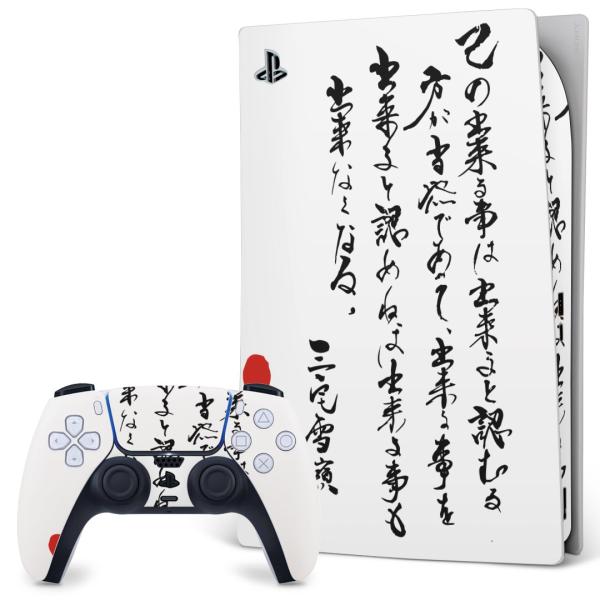 己の出来る事は出来ると認むる
方が当然であつて、出来る事を
出来ると認めねば出来る事も
出来なくなる。
三宅雪嶺